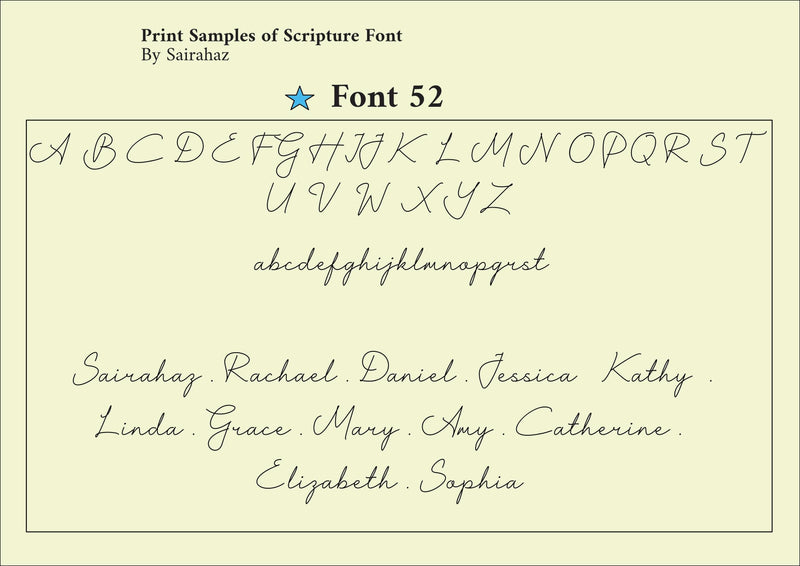 Print Samples of Scripture Font
By Sairahaz
Font 52
A B C D E F G H I J K L M N O P Q R S T
U V W X Y Z
abcdefghijklmnopqrst
Sairahaz . Rachael . Daniel . Jessica Kathy .
Linda . Grace . Mary . Amy . Catherine .
Elizabeth . Sophia